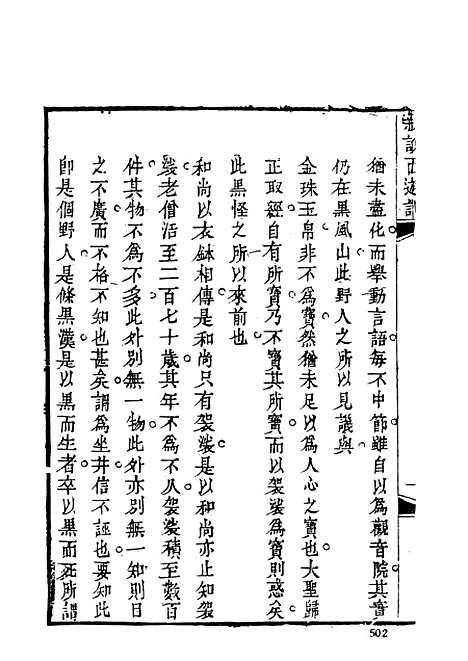 新說西遊記
猶未盡化而舉動言語每不中節雖自以為觀音院其實
仍在黑風山此野人之所以見譏與
金珠玉帛非不為寶然猶未足以為人心之寶也大聖歸
正取經自有所寶乃不寶其所寶而以袈裟為寶則惑矣
此黑怪之所以來前也
和尚以衣鉢相傳是和尚只有袈裟是以和尚亦止知袈
裟老僧活至二百七十歲其年不為不久袈裟積至數百
件其物不為不多此外別無一物此外亦別無一知則目
之不廣而不格不知也甚矣謂為坐井信不誣也要知此
即是個野人是條黑漢是以黑而生者卒以黑而死所謂
一
502